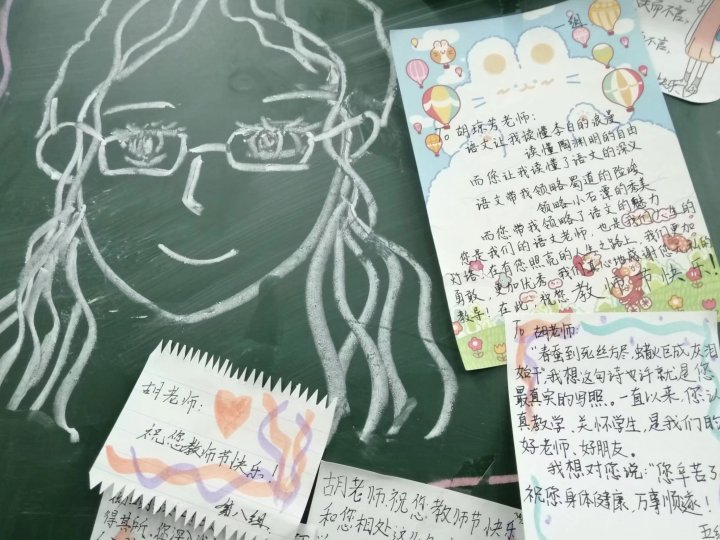 一组
胡琼芳老师:
语文让我读懂李白的浪漫
读懂陶渊明的自由
而您让我读懂了语文的深义
语文带我领略蜀道的险峻
领略小石潭的秀美
而您带我领略了语文的魅力
您是我们的语文老师,也是我们人生的
灯塔,在有您照亮的人生之路上,我们更加
勇敢,更加优秀,我们真心地感谢您的
教导!在此,祝您教师节快乐!
To 胡老师:
“春蚕到死丝方尽,蜡炬成灰泪
始干”我想这句诗也许就是您
最真实的写照。一直以来,您认
真教学、关怀学生,是我们的
好老师、好朋友。
我想对您说:“您辛苦了
祝您身体健康,万事顺遂!
五组
胡老师:
祝您教师节快乐!
第八组
胡老师,祝您教师节快乐
和您相处这
得其所,您
不言,
不言,
快乐